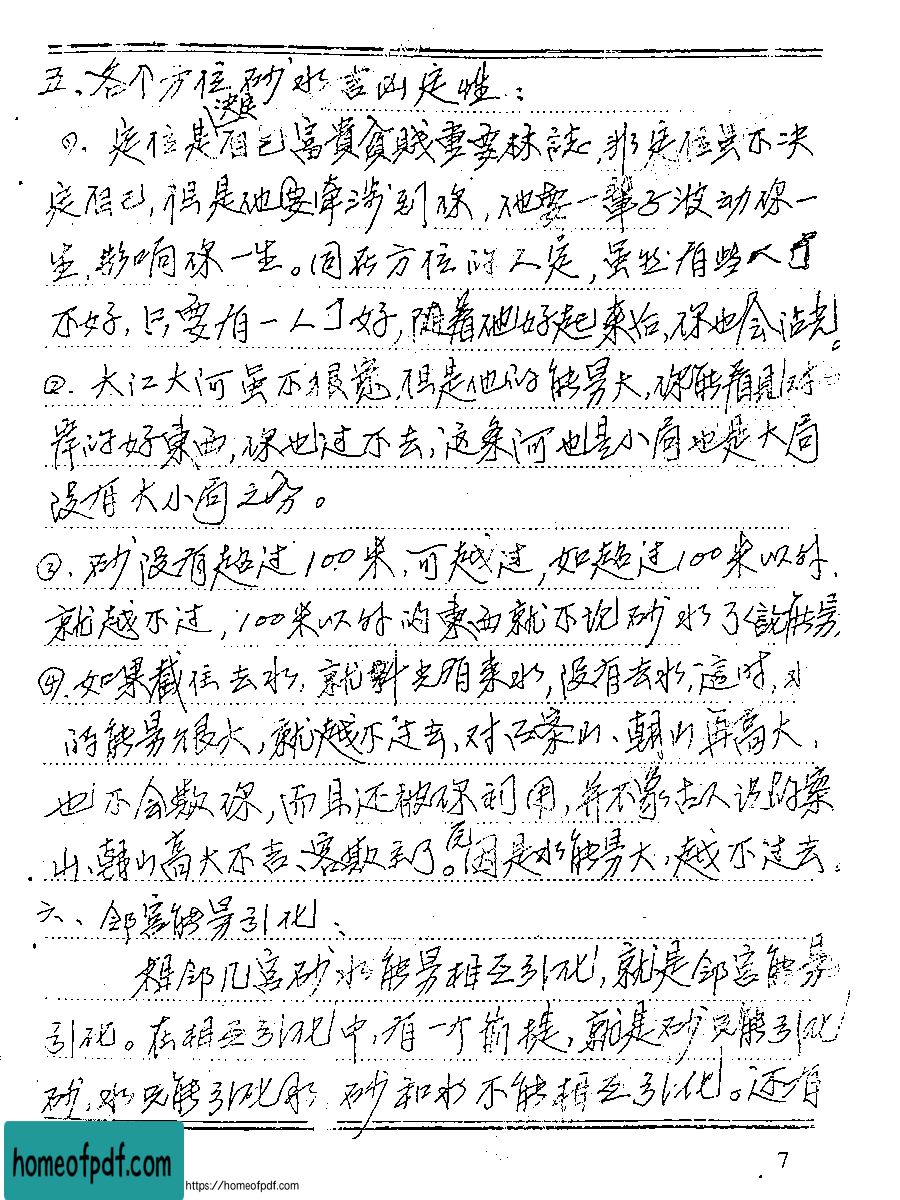 五、各个方位砂水吉凶定性：
决定
①. 定位是自己富貴貧賤重要标誌，非定位虽不决
定自己，但是他要牵涉到你，他要一輩子波动你一
生，影响你一生。同在方位的人定，虽然有些人丁
不好，只要有一人丁好，随着他好起来后，你也会沾光。
②. 大江大河虽不很宽，但是他的能量大，你能看見对
岸的好東西，你也过不去，这条河也是小局也是大局
没有大小局之分。
③. 砂没有超过100米，可越过，如超过100米以外，
就越不过，100米以外的東西就不论砂水了（論能量
④. 如果截住去水，就 光有来水，没有去水，這时，水
的能量很大，就越不过去，对 案山、朝山再高大，
也不会欺你，而且还被你利用，并不象古人说的案
山、朝山高大不吉、客欺主了。因是水能量大，越不过去
六、邻宫能量引化：
相邻几宫砂水能量相互引化，就是邻宫能量
引化。在相互引化中，有一个前提，就是砂只能引化
砂，水只能引化水，砂和水不能相互引化。还有
7
homeofpdf.com
https://homeofpdf.com